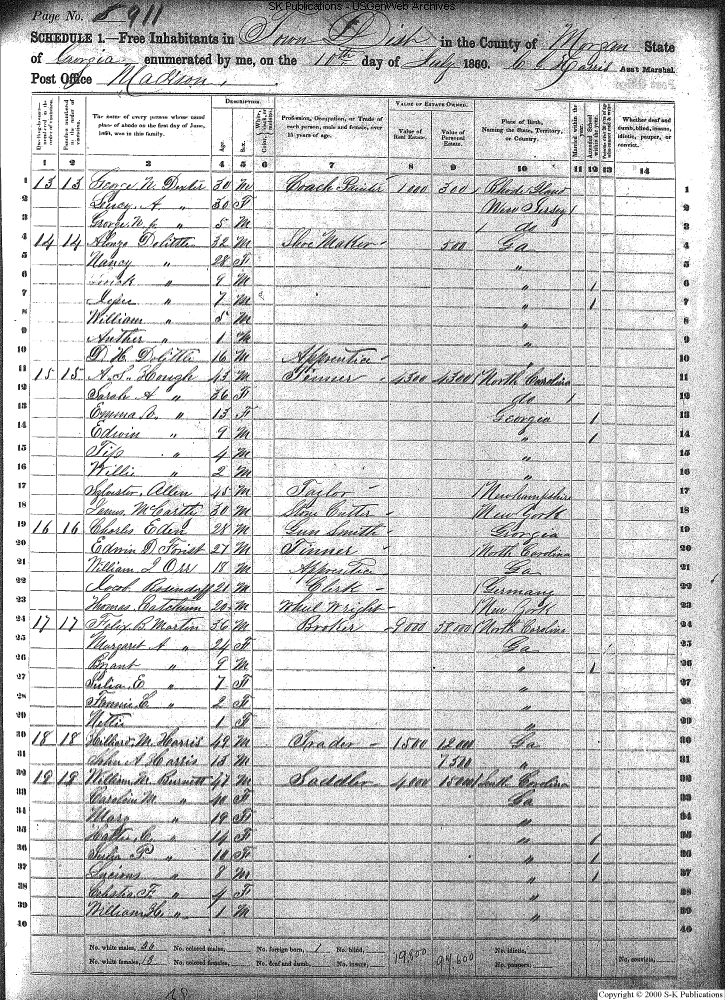 SK Publications - USGenWeb Archives
Page No. 8 911
SCHEDULE 1.—Free Inhabitants in Town Dist in the County of Morgan State
of Georgia enumerated by me, on the 10th day of July 1860. C C Harris Ass't Marshal.
Post Office Madison
DESCRIPTION. VALUE OF ESTATE OWNED.
The name of every person whose usual place of abode on the first day of June, 1860, was in this family.
Age. Sex. Profession, Occupation, or Trade of each person, male and female, over 15 years of age. Value of Real Estate. Value of Personal Estate. Place of Birth, Naming the State, Territory, or Country. Whether deaf and dumb, blind, insane, idiotic, pauper, or convict.
1 2 3 4 5 6 7 8 9 10 11 12 13 14
1 13 13 George W. Dexter 30 M Coach Painter 1000 300 Rhode Island 1
2 Lucy A " 30 F New Jersey 2
3 George W. " 5 M do 3
4 14 14 Alonzo Dolittle 32 M Shoe Maker 500 Ga 4
5 Nancy " 28 F " 5
6 " 9 M " 1 6
7 " 7 M " 1 7
8 William " 5 M " 8
9 Anther " 1 M " 9
10 D. H. Dolittle 16 M Apprentice " 10
11 15 15 A. S. Hough 43 M Tinner 4300 4300 North Carolina 11
12 Sarah A " 36 F do 12
13 Emma A. " 13 F Georgia 1 13
14 Edwin " 9 M " 1 14
15 Tip " 4 M " 15
16 Willie " 2 M " 16
17 Sylvester Allen 45 M Taylor New hampshire 17
18 James McCarthe 30 M Stone Cutter New York 18
19 16 16 Charles Eden 28 M Gun Smith Georgia 19
20 Edwin D Forist 27 M Tinner North Carolina 20
21 William J Orr 18 M Apprentice Ga 21
22 Jacob Rosendorff 21 M Clerk Germany 22
23 Thomas Catchum 20 M Wheel Wright New York 23
24 17 17 Felix B. Martin 36 M Broker 9000 58000 North Carolina 24
25 Margaret A " 24 F Ga 25
26 Bryant " 9 M " 1 26
27 Julia E " 7 F " 27
28 Fannie C " 2 F " 28
29 Nettie 1 F " 29
30 18 18 Hilliard M. Harris 49 M Trader 1500 12000 Ga 30
31 John A Harris 13 M 7500 " 31
32 19 19 William W. Burnett 47 M Saddler 4000 15000 South Carolina 32
33 Carolein M " 40 F Ga 33
34 Mary " 19 F " 34
35 Hattie C " 14 F " 1 35
36 Julia P " 10 F " 1 36
37 Lucious " 8 M " 1 37
38 Celestia F. " 4 F " 38
39 William H. " 1 M " 39
40 40
No. white males, 26 No. colored males, No. foreign born, 1 No. blind, 19,800 94,600 No. idiotic, No. convicts,
No. white females, 13 No. colored females, No. deaf and dumb, No. insane, No. paupers,
Copyright © 2000 S-K Publications